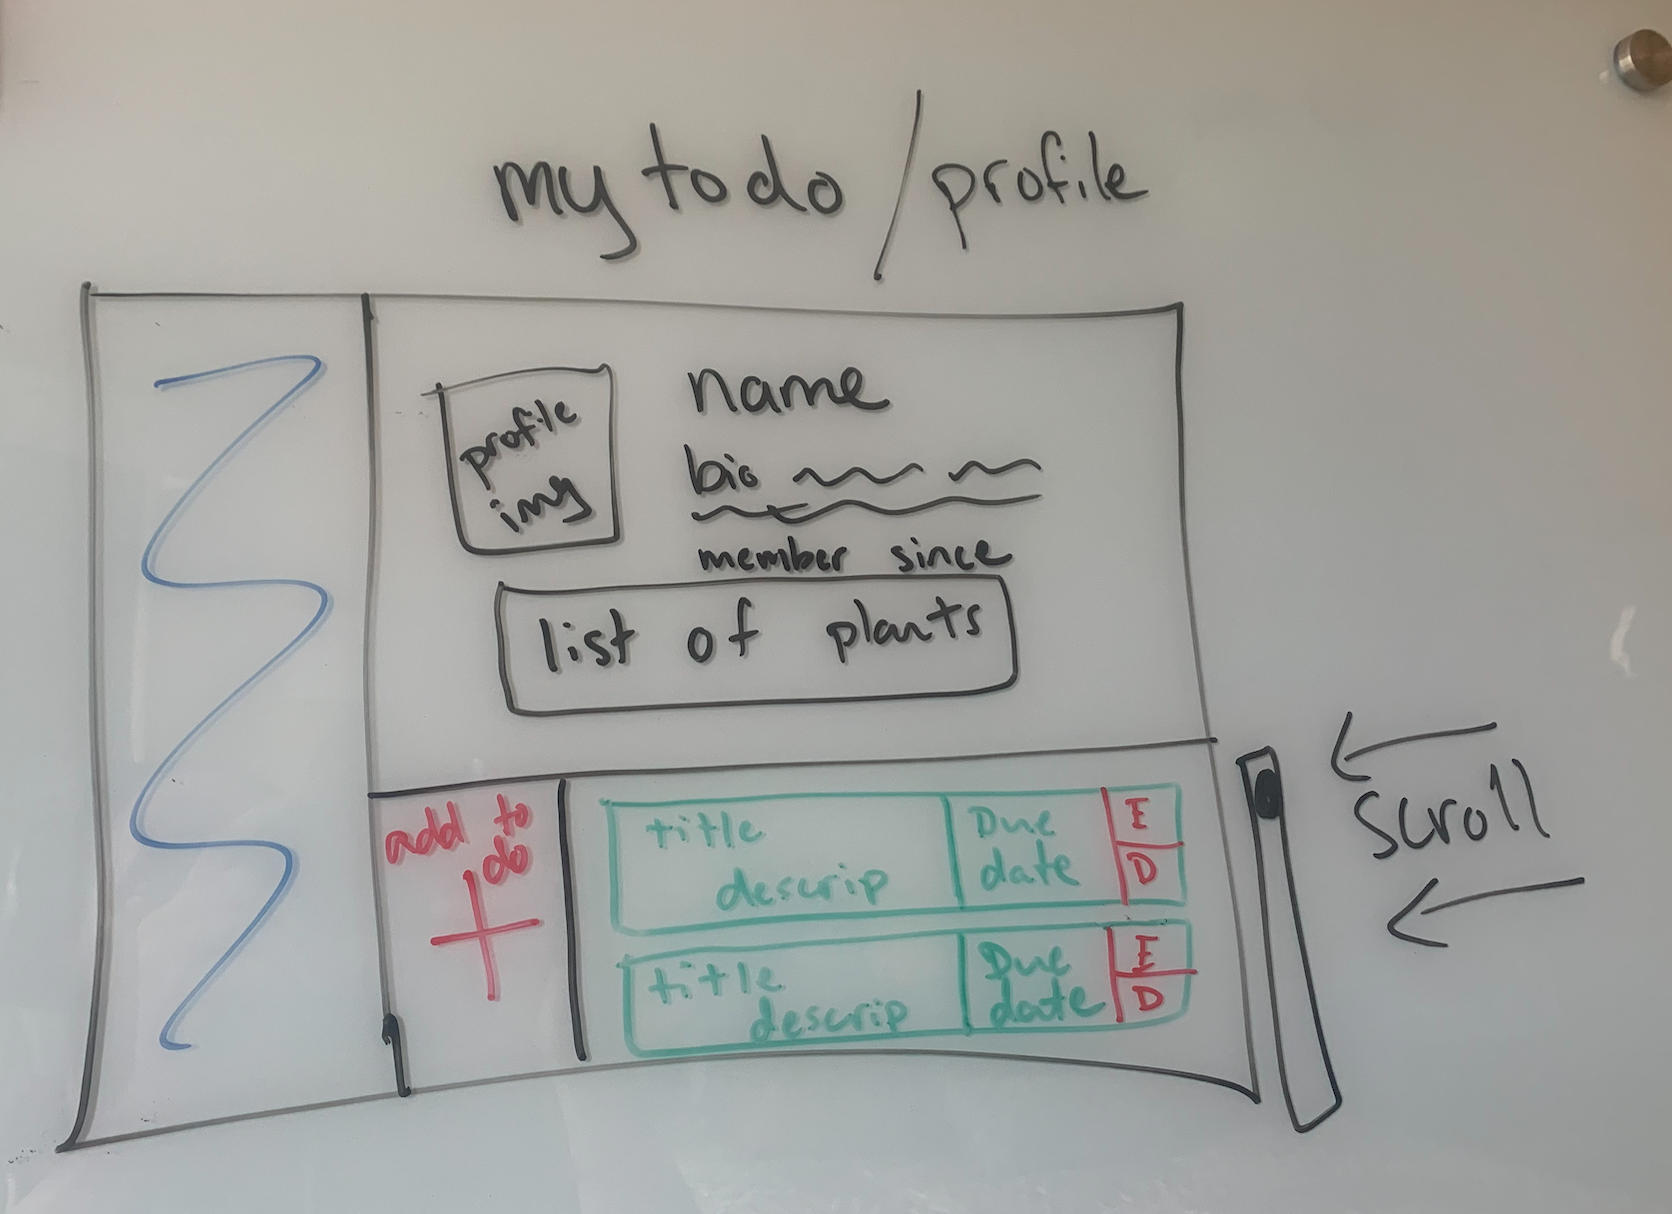 my to do / profile
profile
img
name
bio
member since
list of plants
add to
do
title
descrip
Due
date
E
D
title
descrip
Due
date
E
D
scroll